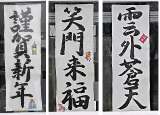 謹賀新年
笑門来福
雲外蒼天